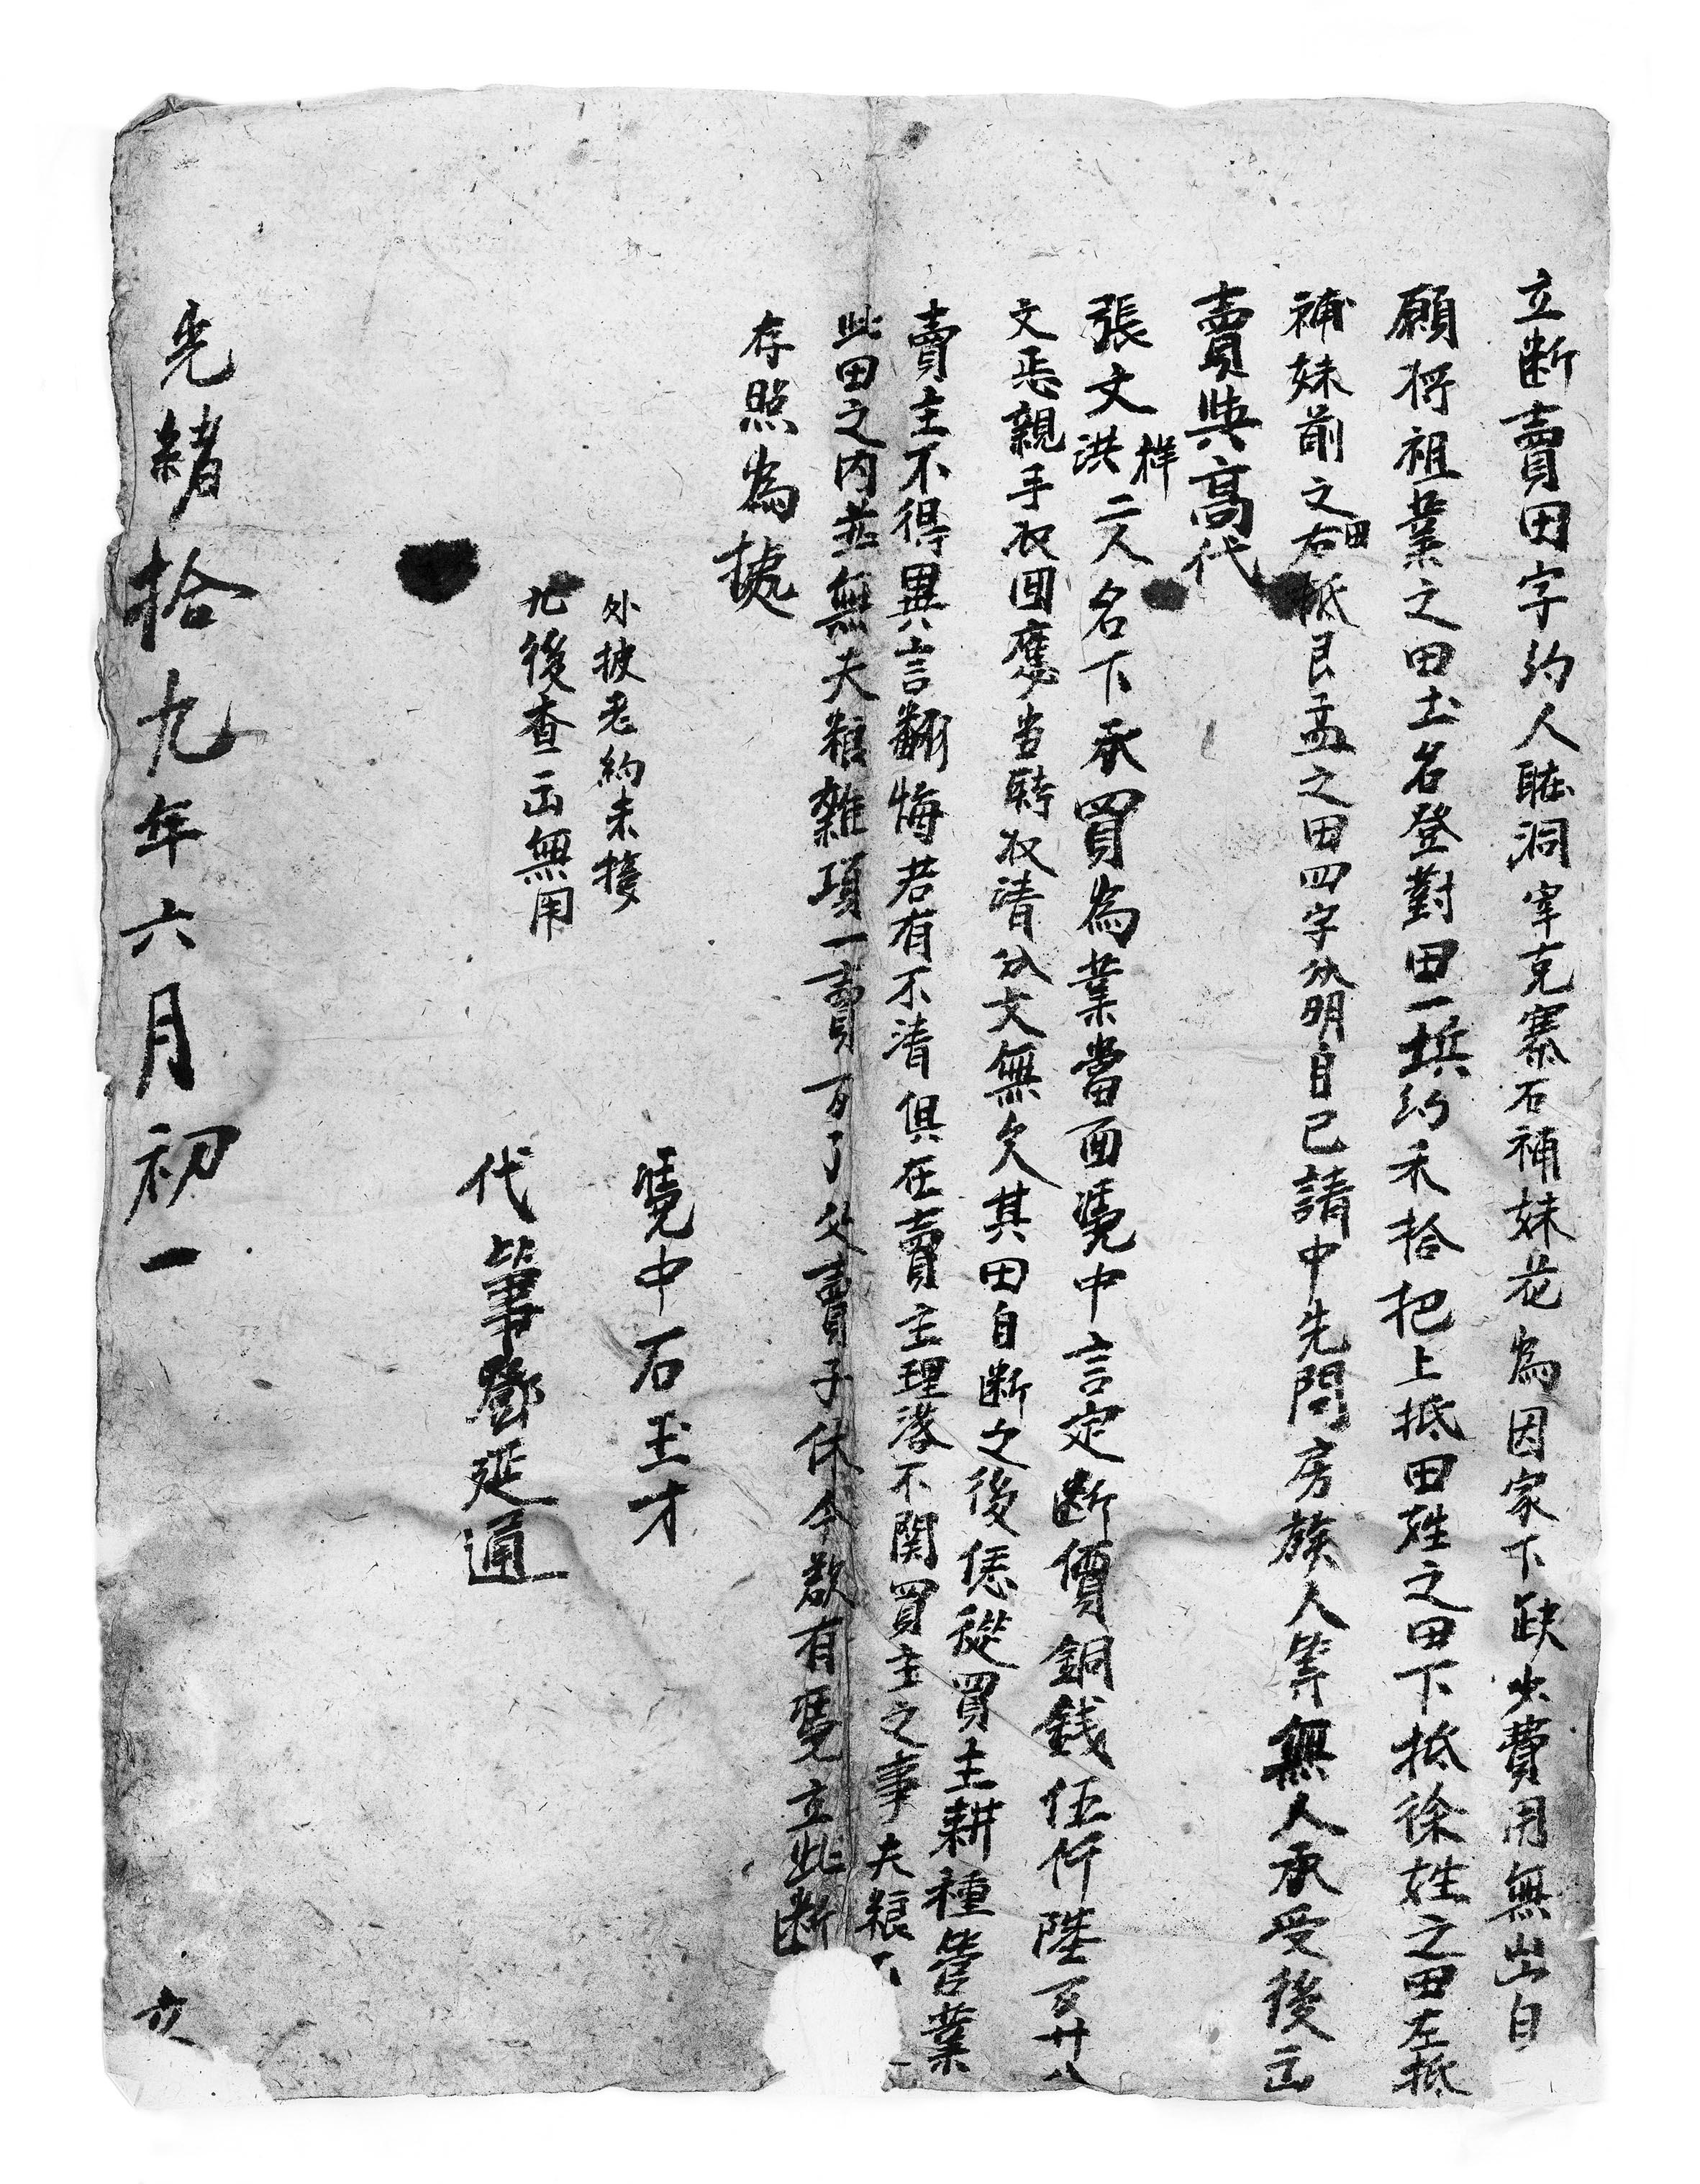 立断賣田字约人聃洞宰克寨石補妹花為因家下缺少費用無出自
願将祖業之田土名登對田一坵约禾拾把上抵田姓之田下抵徐姓之田左抵
補妹前之田右抵艮孟之田四字分明自已請中先問房族人等無人承受後云
賣與高代
張文洪樣二人名下承買為業當面凴中言定断價銅錢伍仟陸百廿八
文恁親手收回應当聩收清分文無欠其田自断之後恁從買主耕種管業
賣主不得異言翻悔若有不清俱在賣主理落不関買主之事夫粮
此田之內並無夫粮雜項一賣百了父賣子休今欲有凴立此断
存照為據
外披老約未接
凢後查出無用
凴中石玉才
代筆鄧延通
光緒拾九年六月初一 立